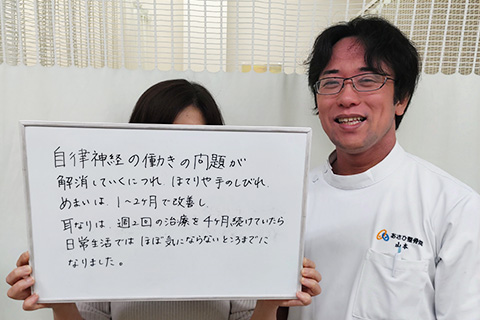 自律神経の働きの問題が
解消していくにつれ、ほてりや手のしびれ、
めまいは、1〜2ヶ月で改善し、
耳なりは、週2回の治療を4ヶ月続けていたら
日常生活では ほぼ気にならないところまでに
なりました。
あさひ整骨院
山本